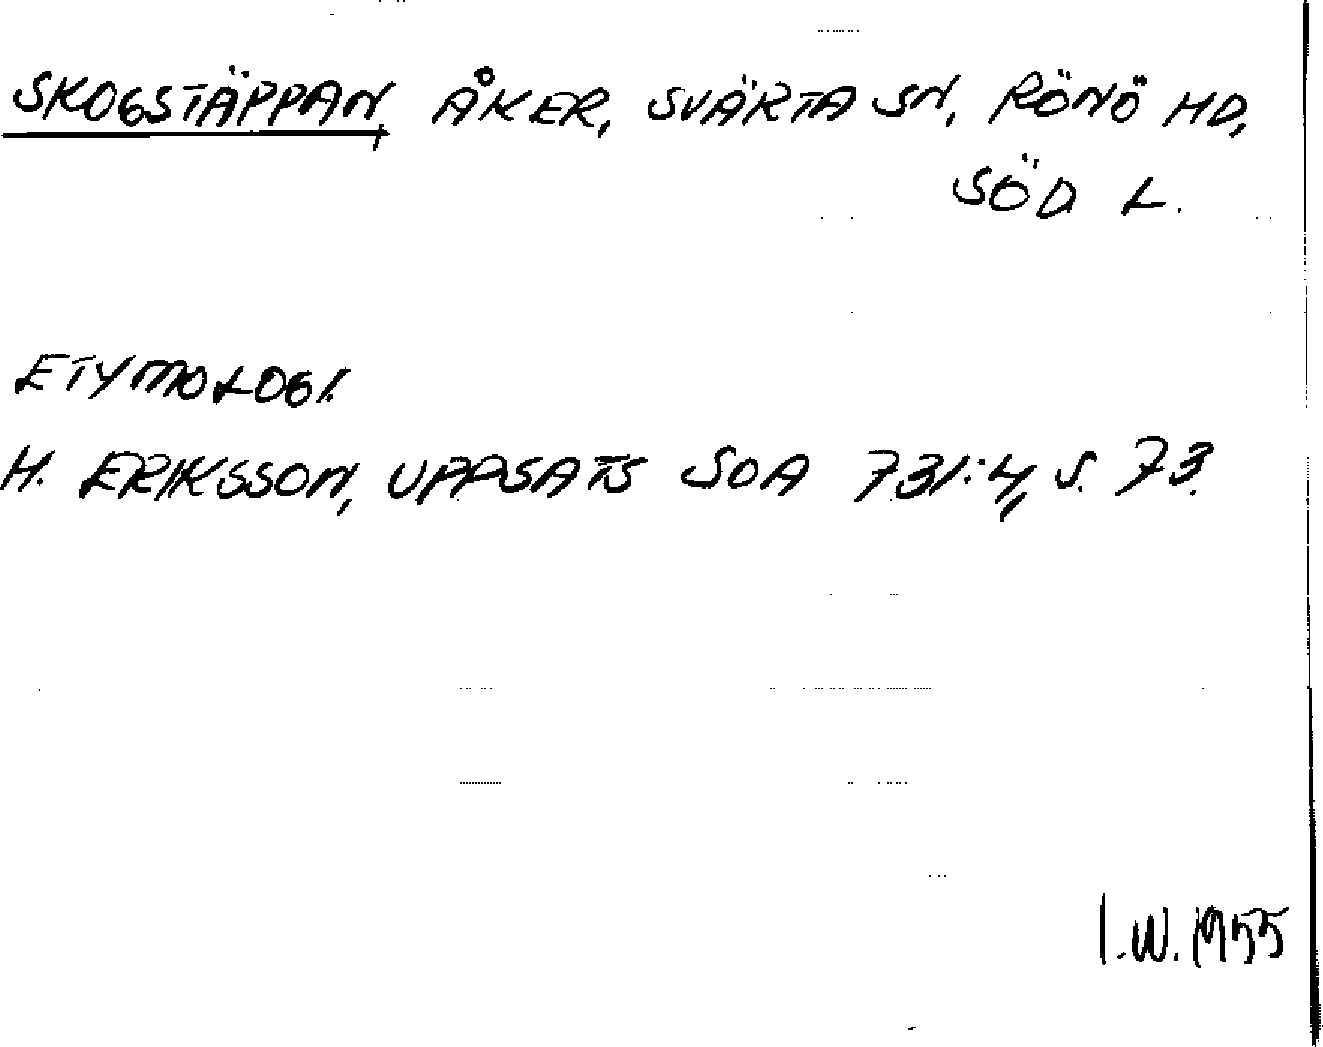 SKOGSTÄPPAN, ÅKER, SVÄRTA SN, RÖNÖ HD,
SÖD L.
ETYMOLOGI.
H. ERIKSSON, UPPSATS SOA 731:4, S. 73.
I.W. 1955